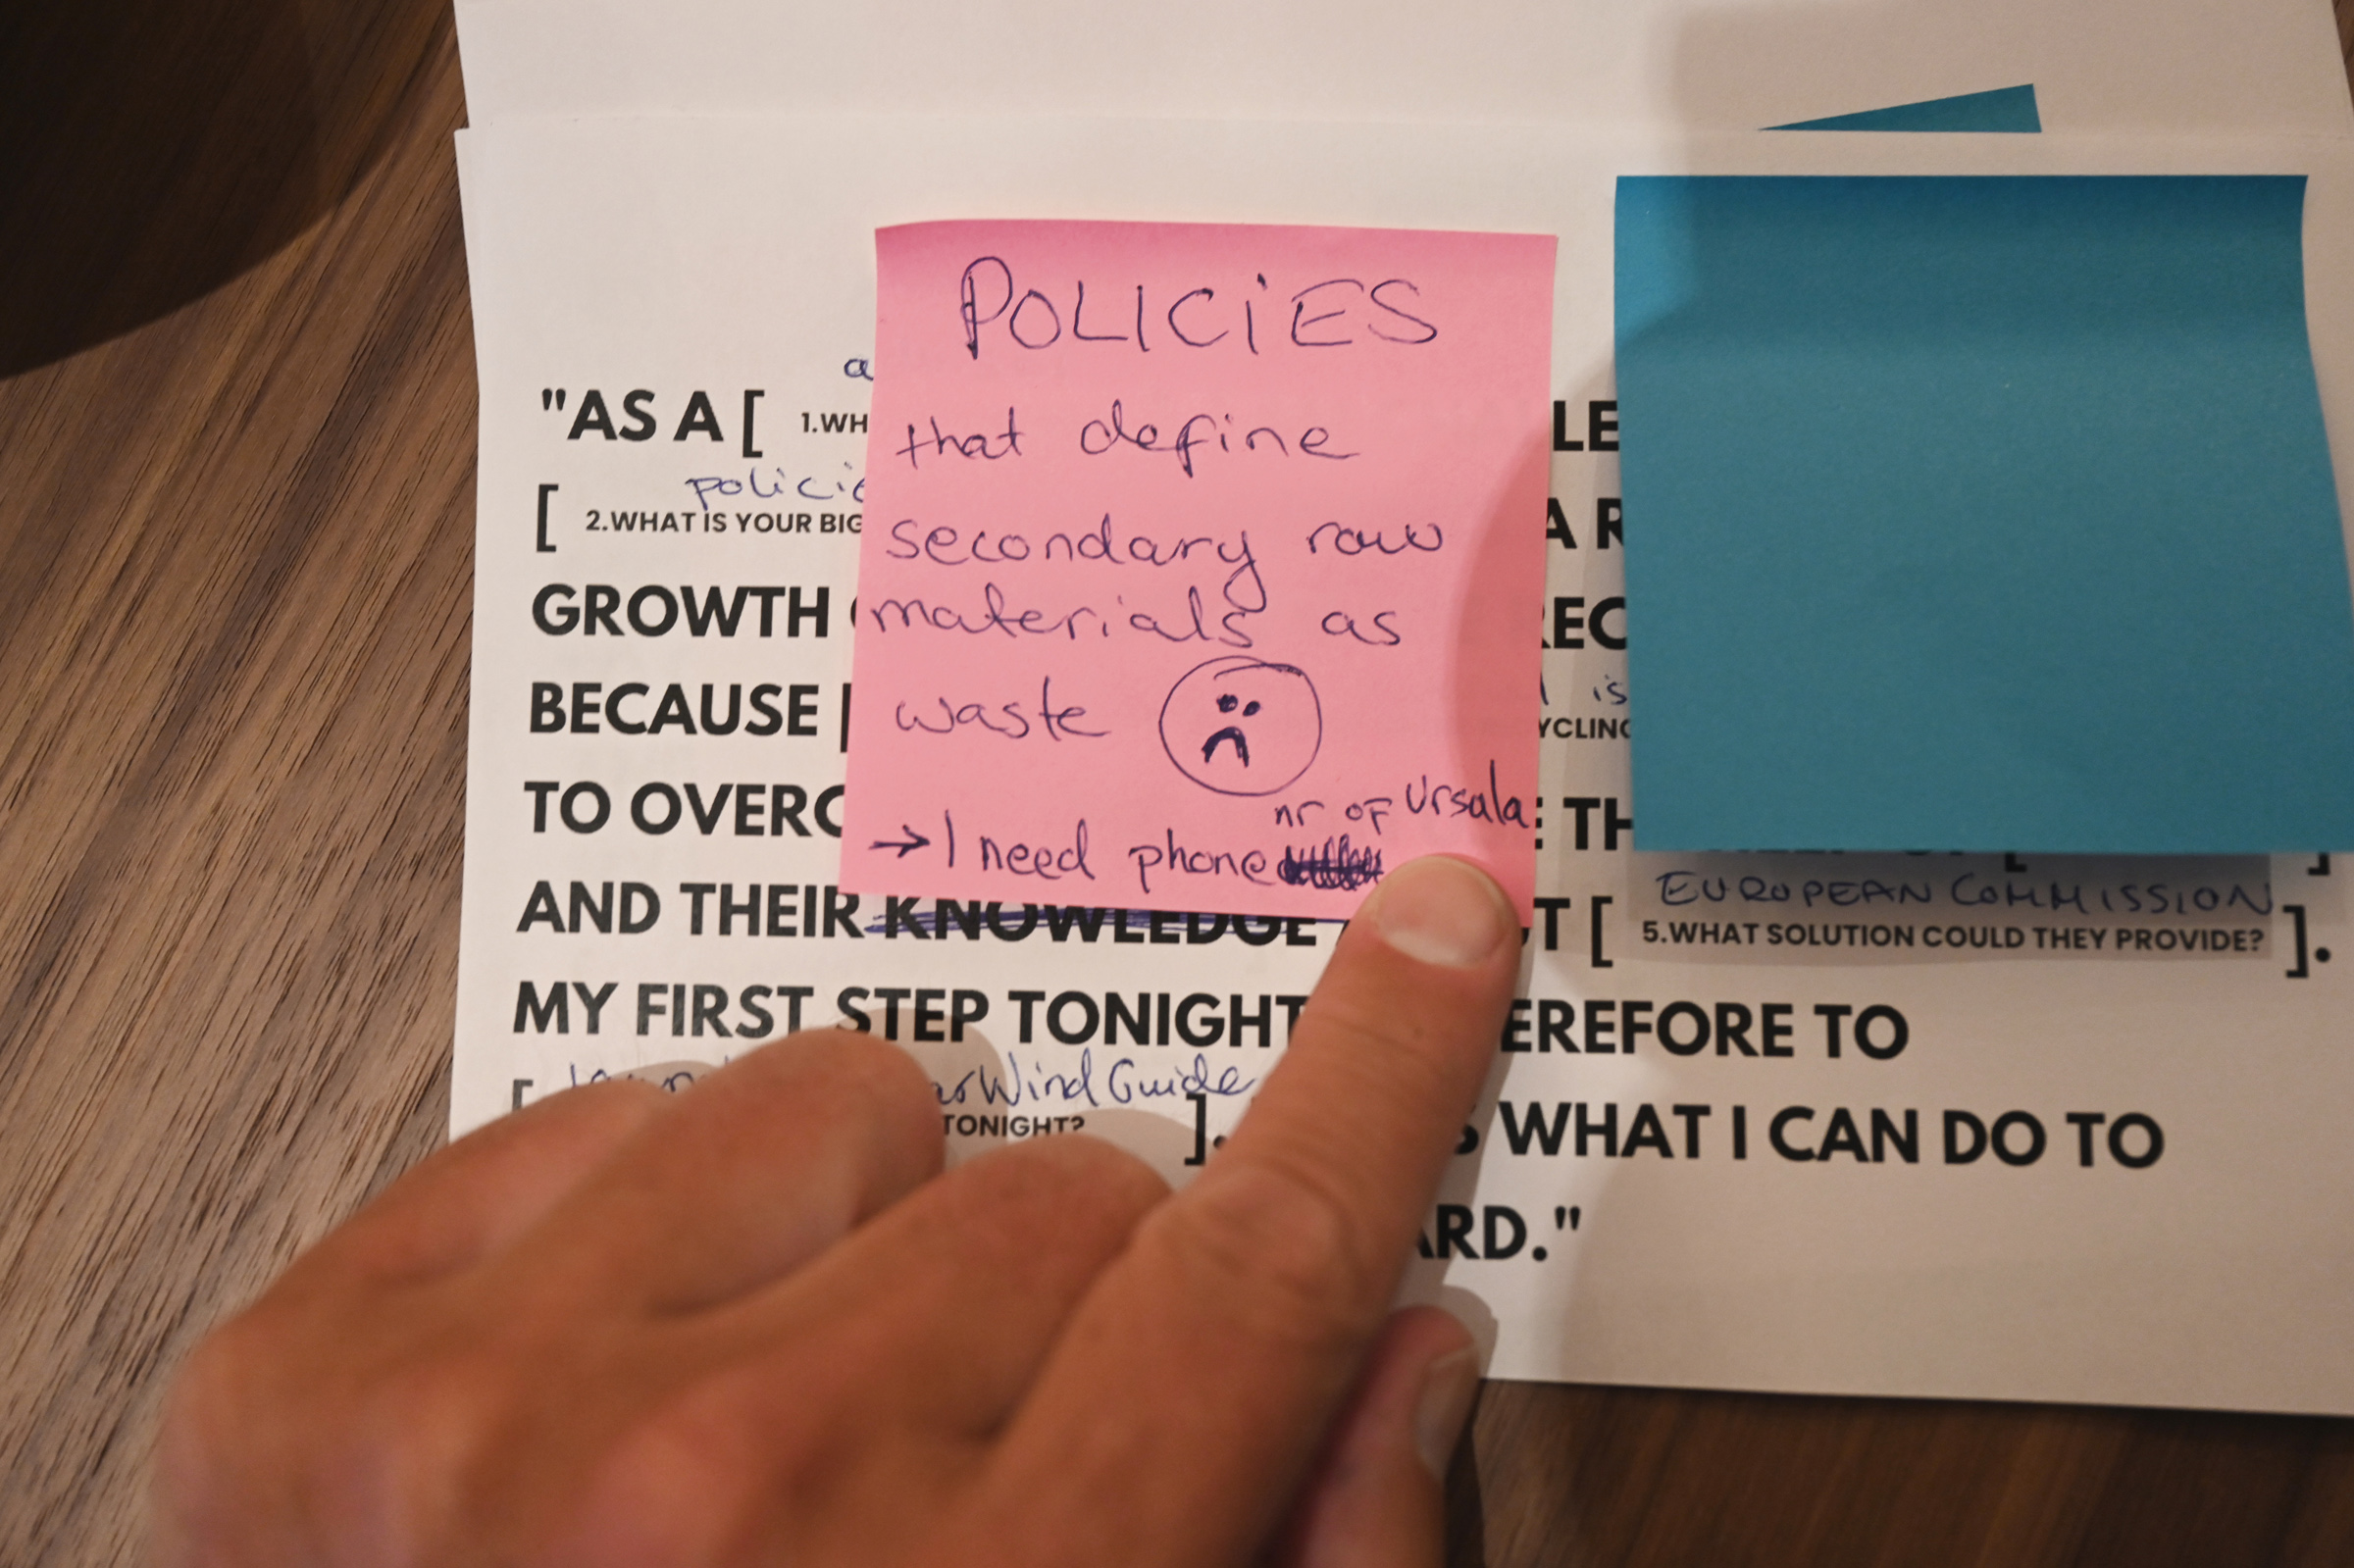 POLICIES
that define
secondary raw
materials as
waste
→ I need phone nr of Ursala
a
"AS A [ LE
1.WH
policie
[ 2.WHAT IS YOUR BIG A R
GROWTH REC
is
BECAUSE [ YCLING
TO OVERC E TH
EUROPEAN COMMISSION
AND THEIR KNOWLEDGE T [ 5.WHAT SOLUTION COULD THEY PROVIDE? ].
MY FIRST STEP TONIGHT EREFORE TO
Wind Guide
[ TONIGHT? ]. WHAT I CAN DO TO
ARD."